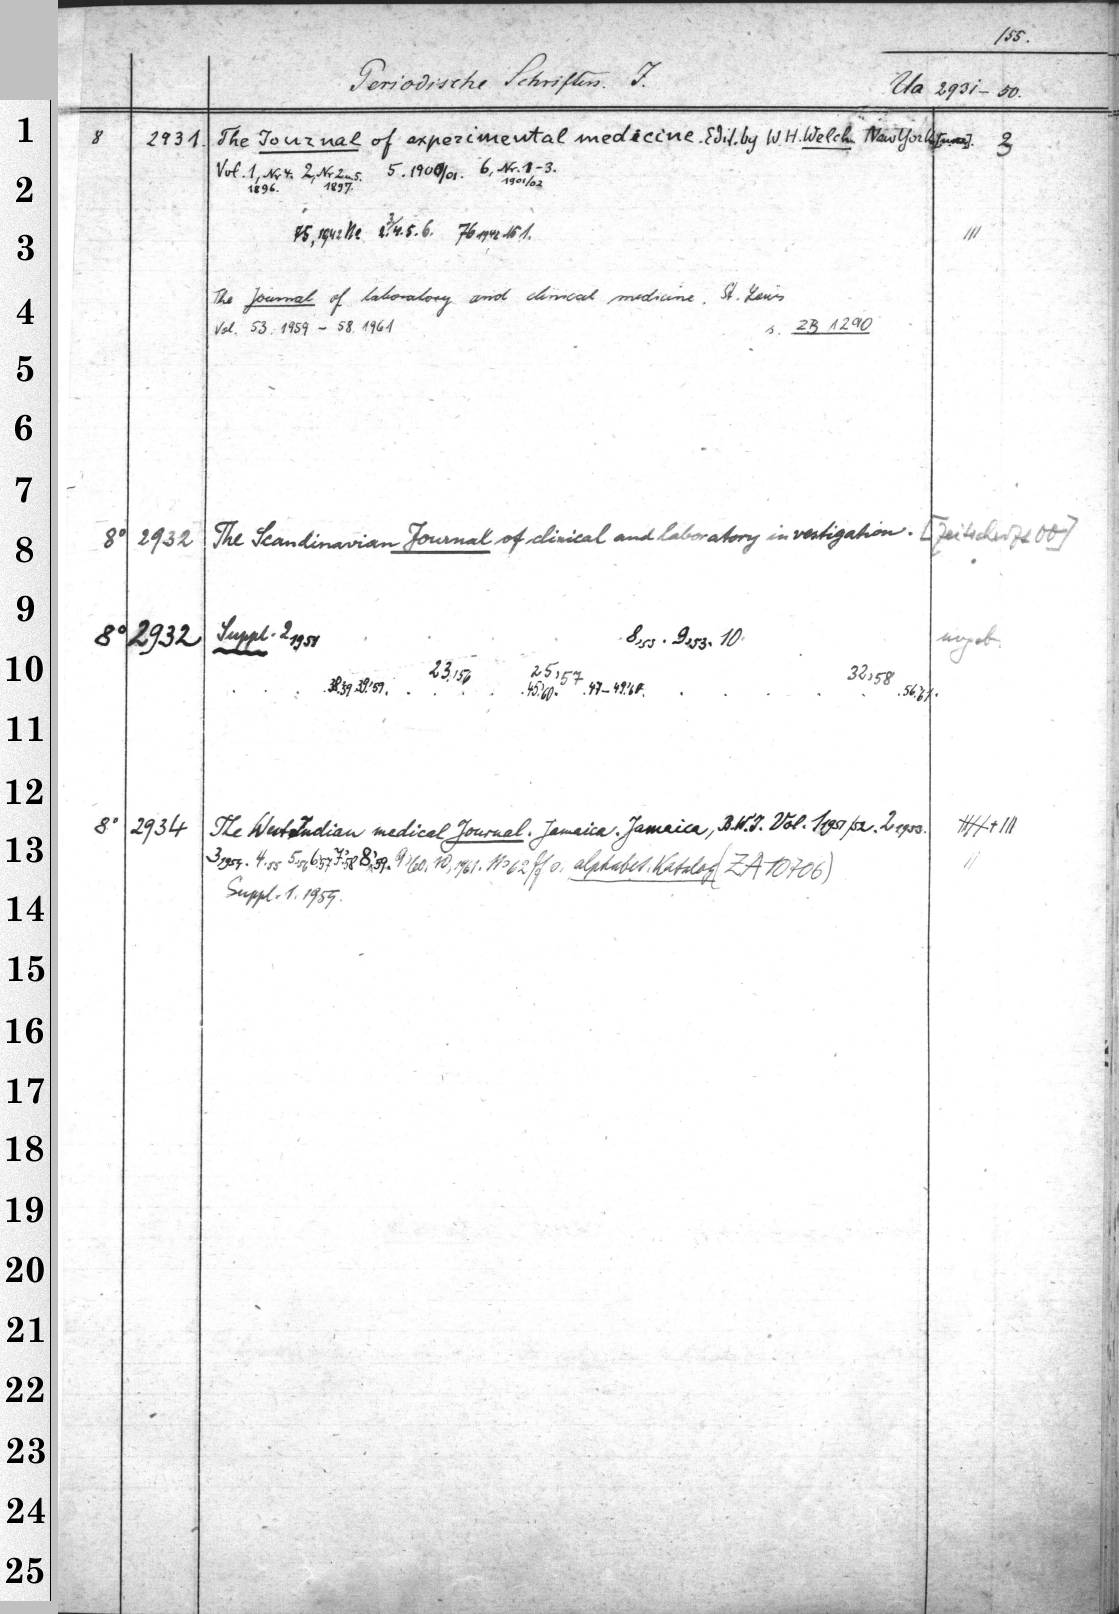 155.
Periodische Schriften. J. Ua 2931-50.
1
8 2931. The Journal of experimental medicine. Edit. by W. H. Welch. New York 3
2
Vol. 1, Nr 4. 1896. 2, Nr 2 u 5. 1897. 5. 1900/01. 6, Nr. 1-3. 1901/02
3
75, 1942 Ne 2. 3/4. 5. 6. 76 1942 1. III
4
The Journal of laboratory and clinical medicine. St. Louis
Vol. 53. 1959 - 58. 1961 s. ZB 1290
5
6
7
8
8° 2932 The Scandinavian Journal of clinical and laboratory investigation. [Zeitschrift 00]
9
8° 2932 Suppl. 2 1951 8,53. 9,53. 10. ungeb.
10
23,56 25,57 32,58
38.39 39.59. 45.60. 47-49.61. 56.61.
11
12
13
8° 2934 The West Indian medical Journal. Jamaica. Jamaica, B.W.I. Vol. 1 1951/52. 2 1953. + III
3 1954. 4.55 5.56 6.57 7.58 8.59. 9.60. 10, 1961. 11.62 ff s. alphabet. Katalog (ZA 10706) II
14
Suppl. 1. 1959.
15
16
17
18
19
20
21
22
23
24
25